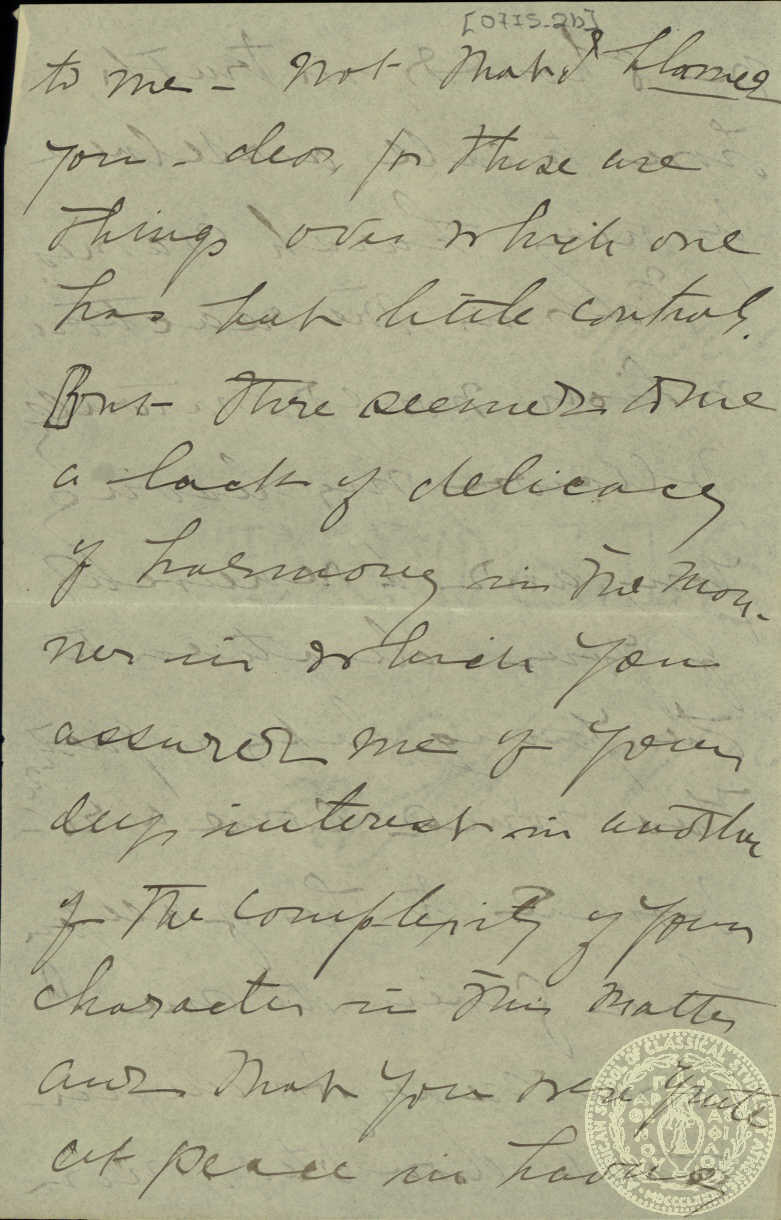 [0715-2b]
to me - not that I blamed
you - dear, for these are
things over which one
has but little control.
But there seemed to me
a lack of delicacy
of harmony in the man-
ner in which you
assured me of your
deep interest in another
of the complexity of your
character in this matter
and that you were quite
at peace in having